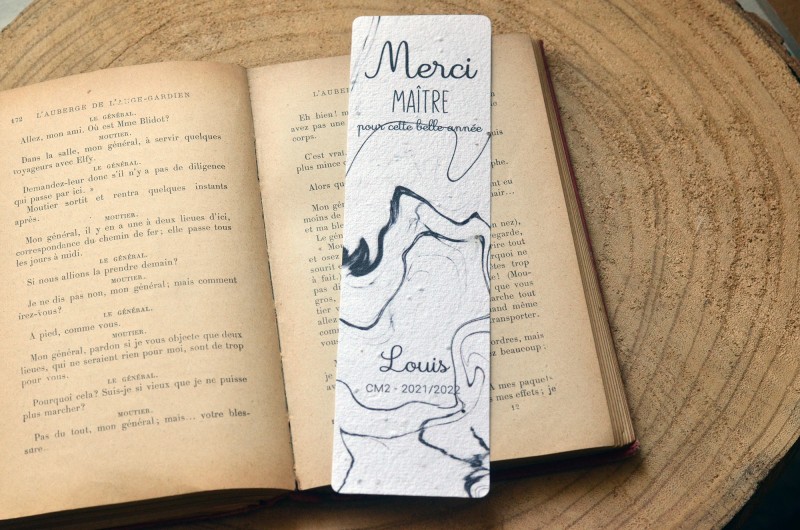 472 L'AUBERGE DE L'ANGE-GARDIEN
LE GÉNÉRAL.
Allez, mon ami. Où est Mme Blidot?
MOUTIER.
Dans la salle, mon général, à servir quelques
voyageurs avec Elfy.
LE GÉNÉRAL.
Demandez-leur donc s'il n'y a pas de diligence
qui passe par ici. »
Moutier sortit et rentra quelques instants
après.
MOUTIER.
Mon général, il y en a une à deux lieues d'ici,
correspondance du chemin de fer; elle passe tous
les jours à midi.
LE GÉNÉRAL.
Si nous allions la prendre demain?
MOUTIER.
Je ne dis pas non, mon général; mais comment
irez-vous?
LE GÉNÉRAL.
A pied, comme vous.
MOUTIER.
Mon général, pardon si je vous objecte que deux
lieues, qui ne seraient rien pour moi, sont de trop
pour vous.
LE GÉNÉRAL.
Pourquoi cela? Suis-je si vieux que je ne puisse
plus marcher?
MOUTIER.
Pas du tout, mon général; mais... votre bles-
sure...
L'AU
Eh bien! m
avez pas une
corps.
C'est vrai,
plus mince
Alors qu
Mon gé
moins de
et ma ble
Le géné
« Mou
et osez
sourit
à fait.
pas di
gros,
tier
allez
comm
mon
Mo
je
av
Merci
MAÎTRE
pour cette belle année
Louis
CM2 - 2021/2022
nt eu
air...
nez),
egarde,
rire tout
urquoi ne
êtes trop
! (Mou-
arche tout
and même
transporter.
ordres, mais
z beaucoup;
mes paque!-
mes effets; je
12